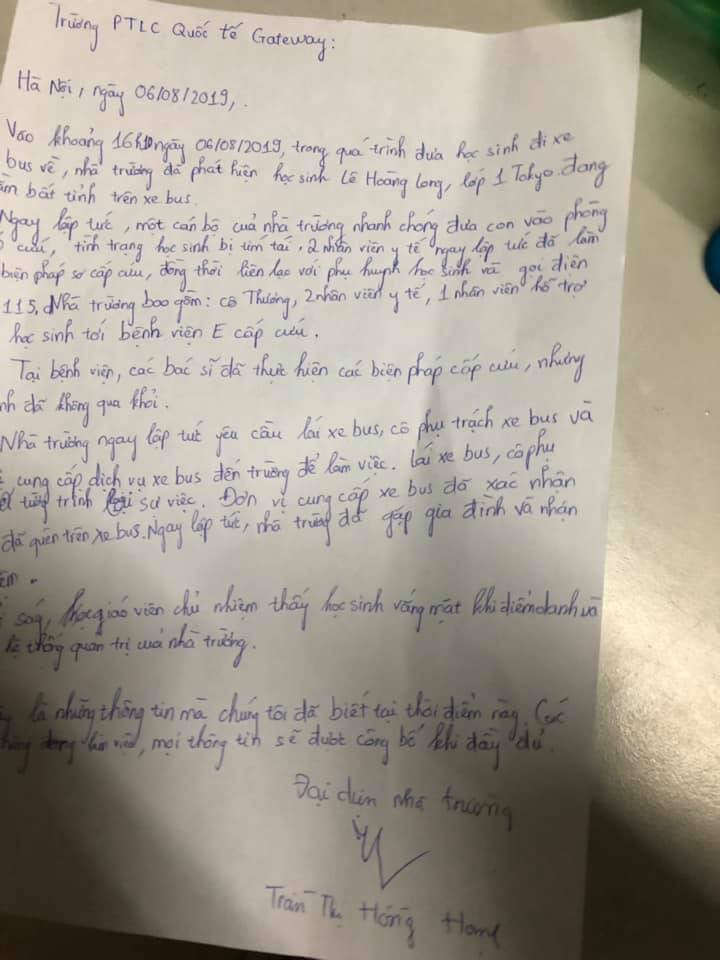 Trường PTLC Quốc tế Gateway:
Hà Nội, ngày 06/08/2019,.
Vào khoảng 16h10 ngày 06/08/2019, trong quá trình đưa học sinh đi xe
bus về, nhà trường đã phát hiện học sinh Lê Hoàng Long, lớp 1 Tokyo đang
bất tỉnh trên xe bus.
Ngay lập tức, một cán bộ của nhà trường nhanh chóng đưa con vào phòng
cứu, tình trạng học sinh bị tím tái. 2 nhân viên y tế ngay lập tức đã làm
biện pháp sơ cấp cứu, đồng thời liên lạc với phụ huynh học sinh và gọi điện
115. Nhà trường bao gồm: cô Thương, 2 nhân viên y tế, 1 nhân viên hỗ trợ
học sinh tới bệnh viện E cấp cứu.
Tại bệnh viện, các bác sĩ đã thực hiện các biện pháp cấp cứu, nhưng
đã không qua khỏi.
Nhà trường ngay lập tức yêu cầu lái xe bus, cô phụ trách xe bus và
cung cấp dịch vụ xe bus đến trường để làm việc. Lái xe bus, cô phụ
tường trình lại sự việc. Đơn vị cung cấp xe bus đã xác nhận
đã quên trên xe bus. Ngay lập tức, nhà trường đã gặp gia đình và nhận
giáo viên chủ nhiệm thấy học sinh vắng mặt khi điểm danh và
thống quản trị của nhà trường.
là những thông tin mà chúng tôi đã biết tại thời điểm này. Các
mọi thông tin sẽ được công bố khi đầy đủ.
Đại diện nhà trường
Trần Thị Hồng Hạnh